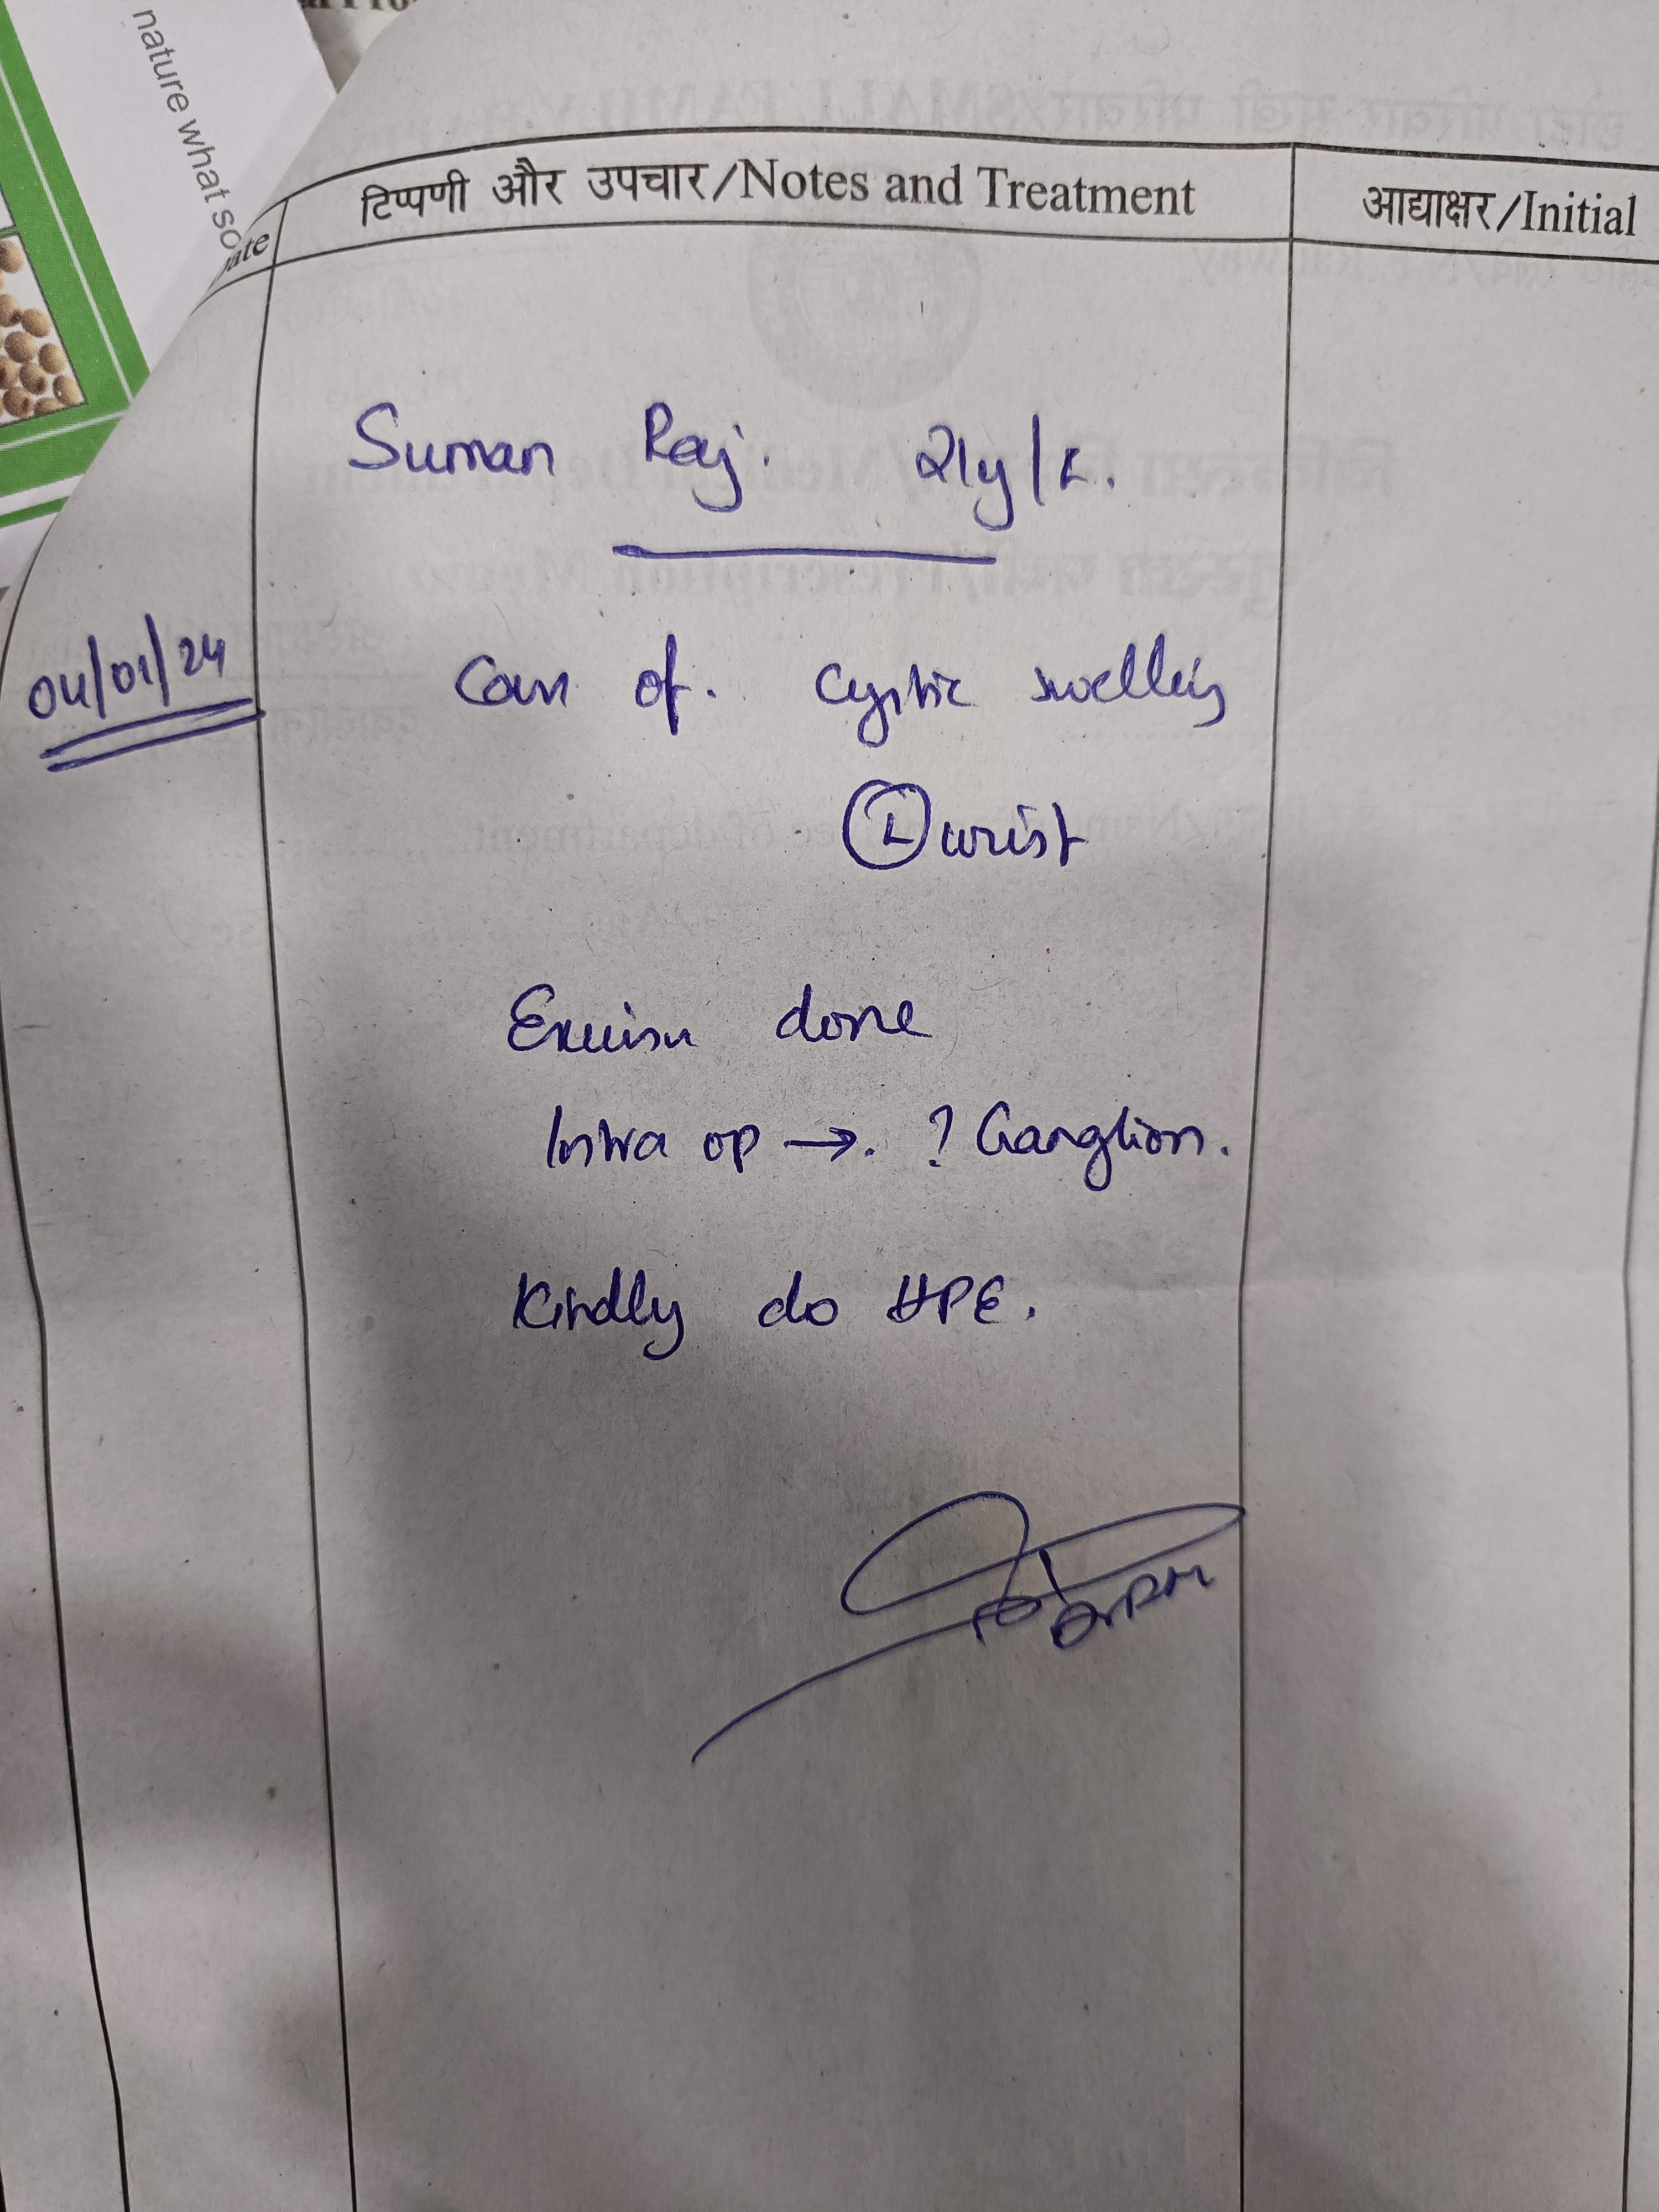 nature what so
ate
टिप्पणी और उपचार/Notes and Treatment
आद्याक्षर/Initial
Suman Raj. 21y/F.
04/01/24
Case of. Cystic swelling
Ⓛ wrist
Excision done
Intra op →. ? Ganglion.
Kindly do HPE.